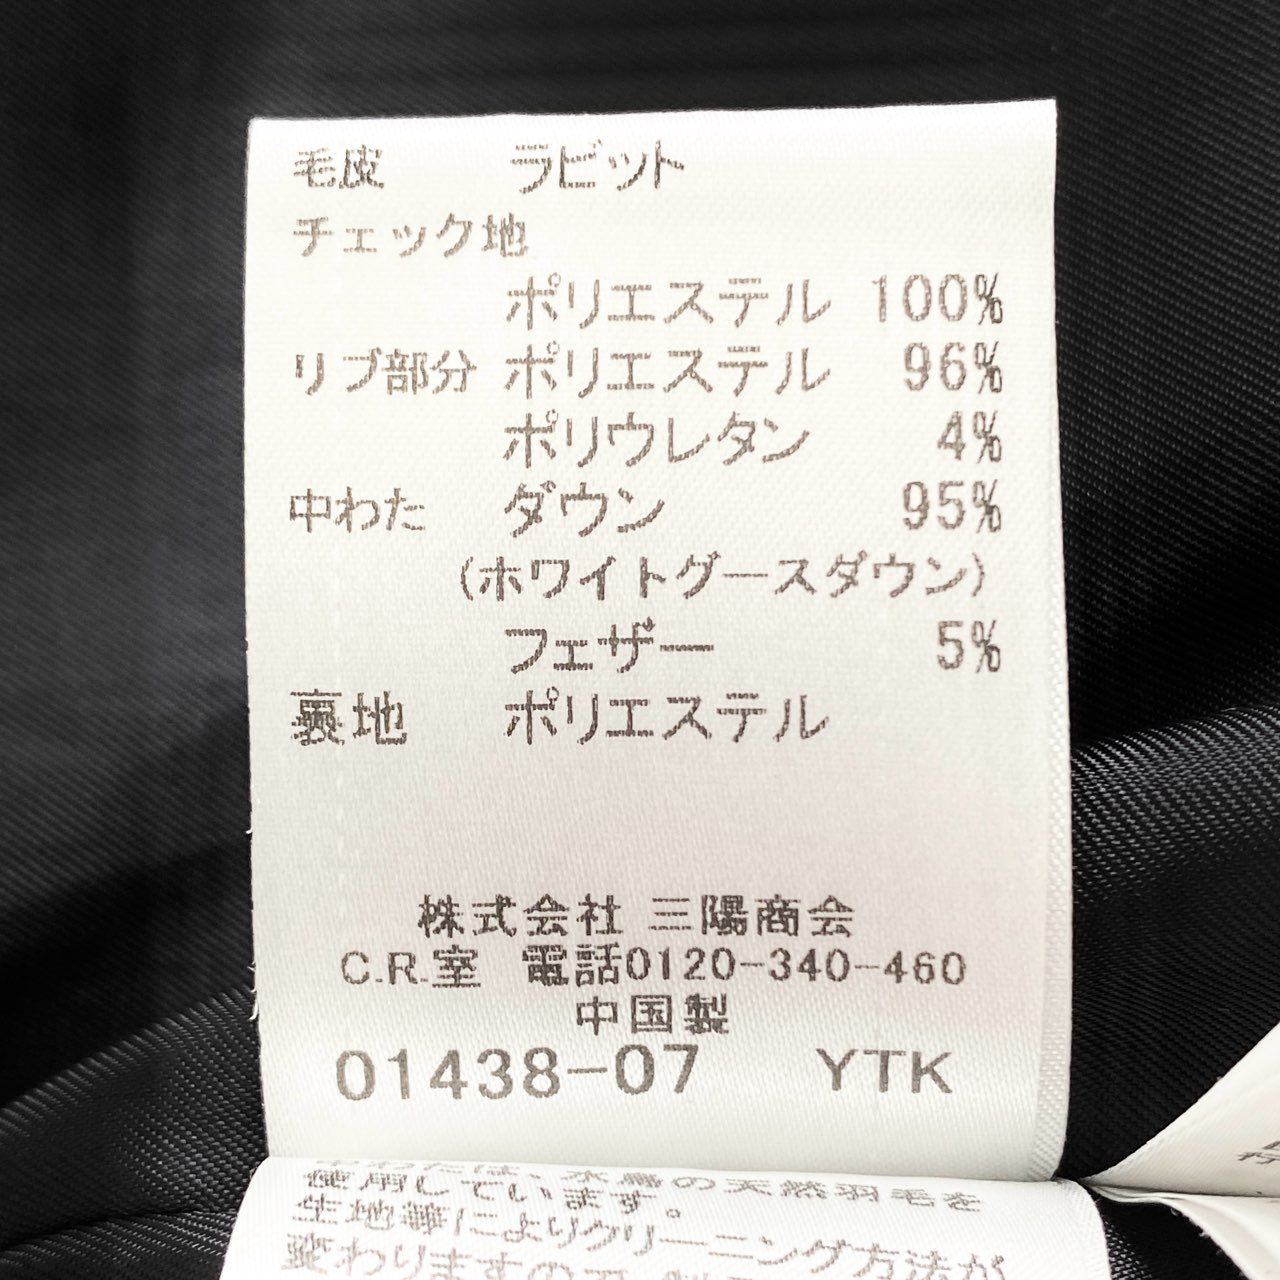 毛皮 ラビット
チェック地
ポリエステル 100%
リブ部分 ポリエステル 96%
ポリウレタン 4%
中わた ダウン 95%
(ホワイトグースダウン)
フェザー 5%
裏地 ポリエステル
株式会社 三陽商会
C.R.室 電話0120-340-460
中国製
01438-07 YTK
中わたは、水鳥の天然羽毛を
使用しています。
生地等によりクリーニング方法が
変わりますので